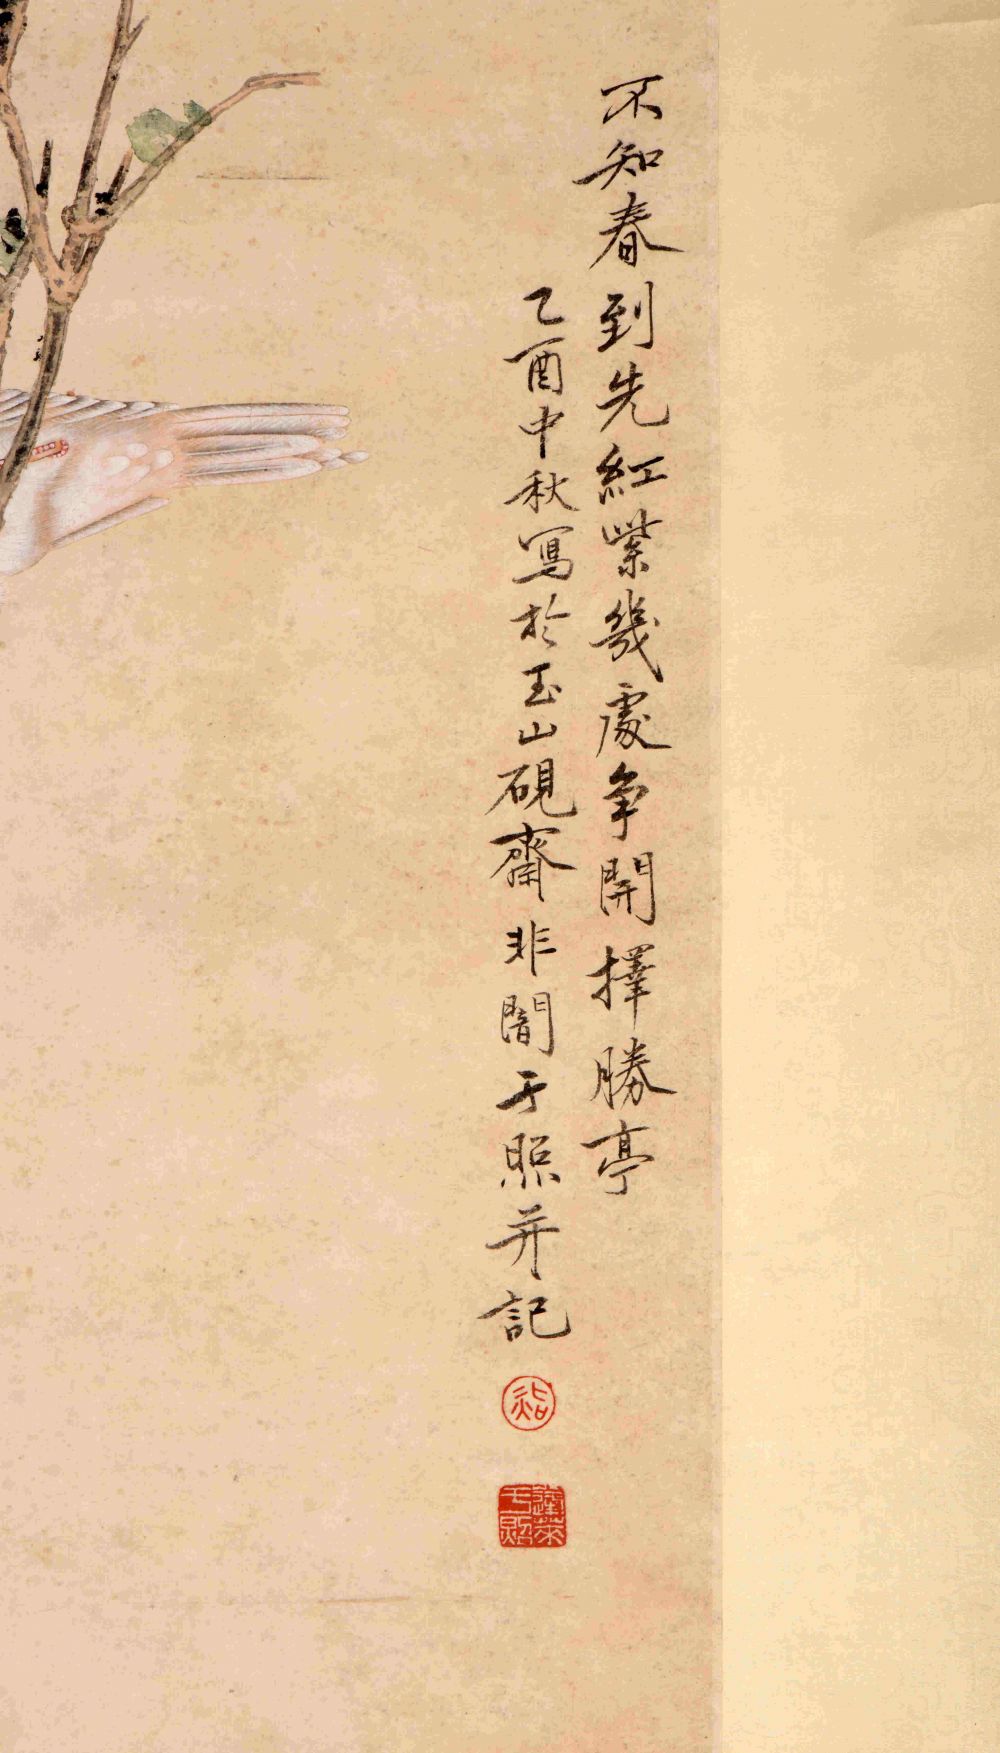 不知春到先紅紫幾處争開擇勝亭
乙酉中秋寫於玉山硯齋非闇于照并記
照
蓬萊于照